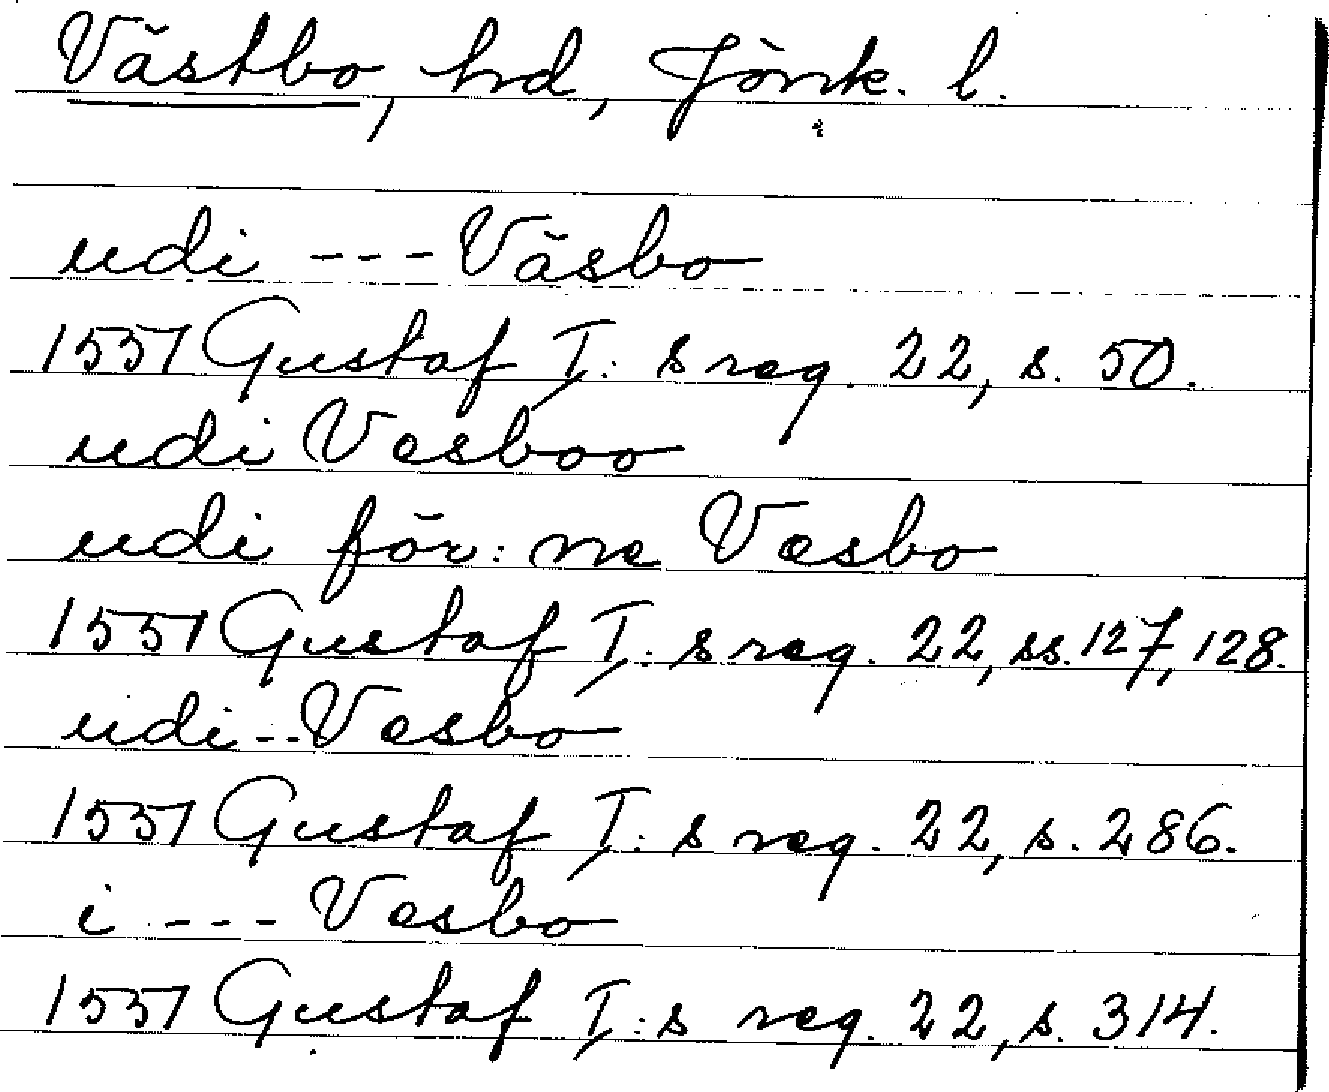 Västbo, hd, Jönk. l.
udi --- Väsbo
1551 Gustaf I:s reg. 22, s. 50.
udi Vesboo
udi för:ne Vesbo
1551 Gustaf I:s reg. 22, ss. 127, 128.
udi --- Vesbo
1551 Gustaf I:s reg. 22, s. 286.
i --- Vesbo
1551 Gustaf I:s reg. 22, s. 314.